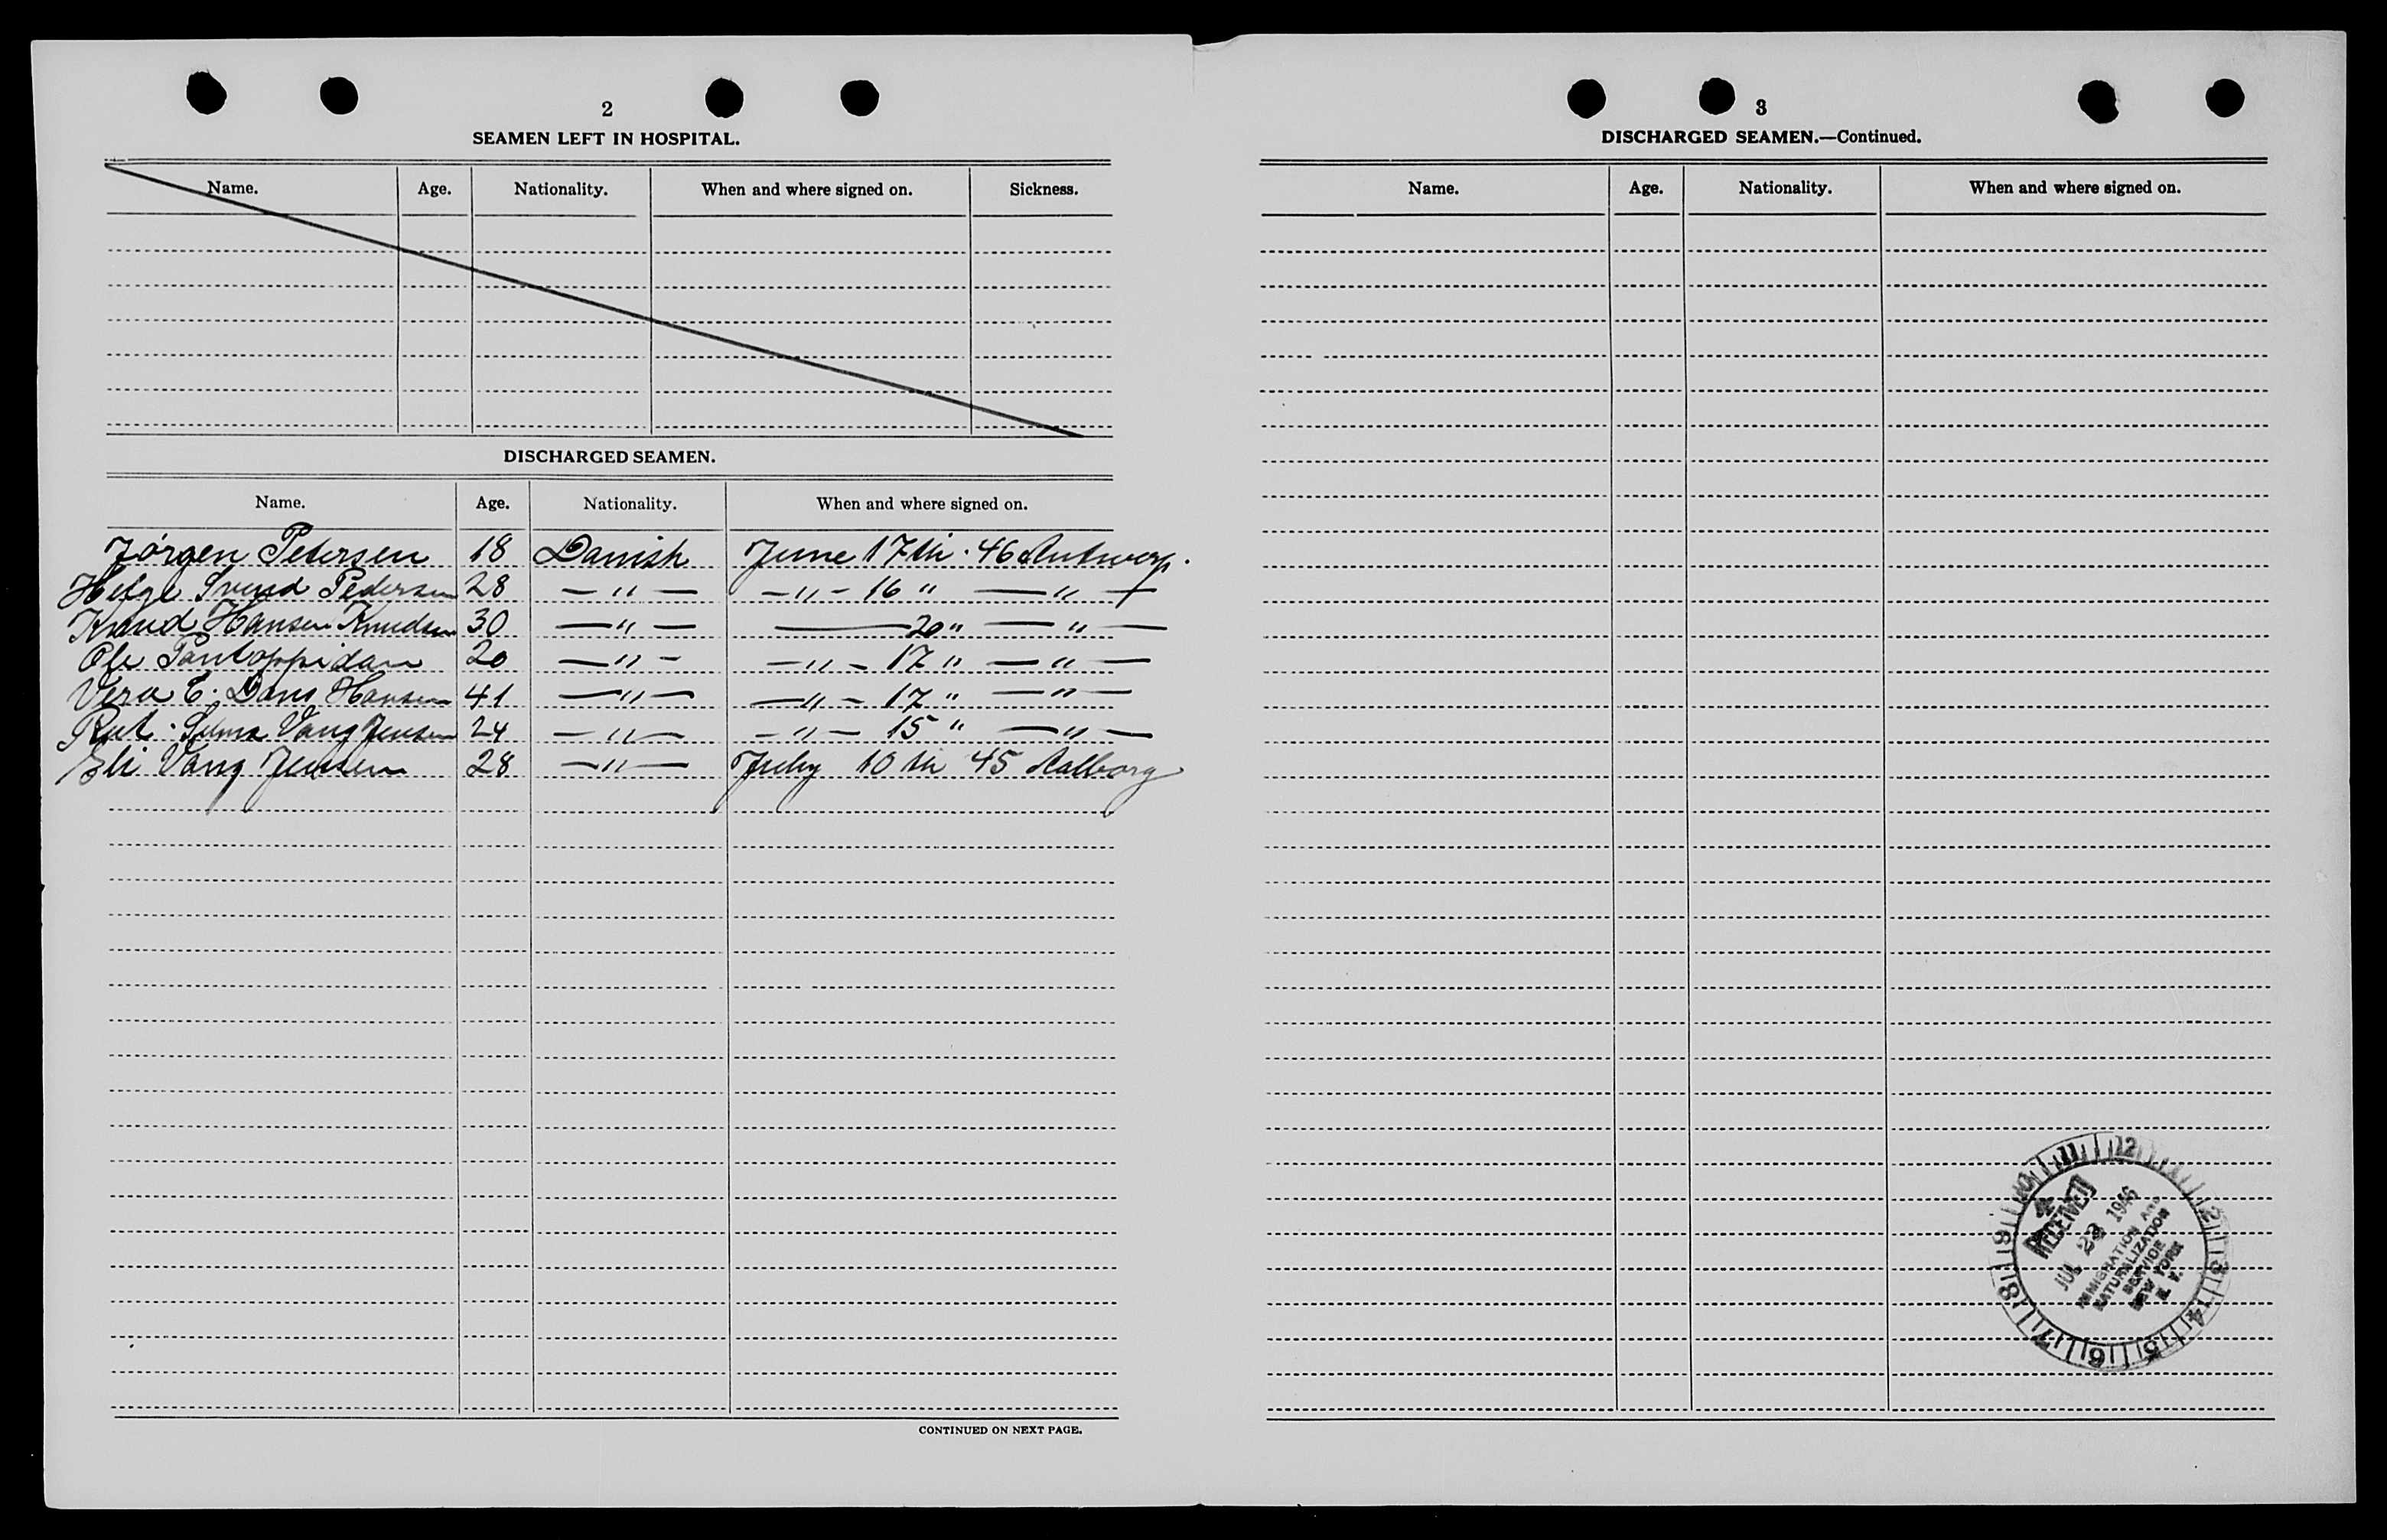 2
SEAMEN LEFT IN HOSPITAL.
Name. Age. Nationality. When and where signed on. Sickness.
DISCHARGED SEAMEN.
Name. Age. Nationality. When and where signed on.
Jörgen Petersen 18 Danish June 17th. 46 Antwerp.
Helge Svend Pedersen 28 — " — — " — 16 " — " —
Knud Hansen Knudsen 30 — " — — 20 " — " —
Ole Pontoppidan 20 — " — — " — 17 " — " —
Vera E. Dans Hansen 41 — " — — " — 17 " — " —
Rut Vang Jensen 24 — " — — " — 15 " — " —
Eli Vang Jensen 28 — " — July 10th 45 Aalborg
CONTINUED ON NEXT PAGE.
3
DISCHARGED SEAMEN.—Continued.
Name. Age. Nationality. When and where signed on.
RECEIVED
JUL 1946
IMMIGRATION AND
NATURALIZATION
SERVICE
NEW YORK
N. Y.
11 12 2 3 4 5 6 7 8 9 10